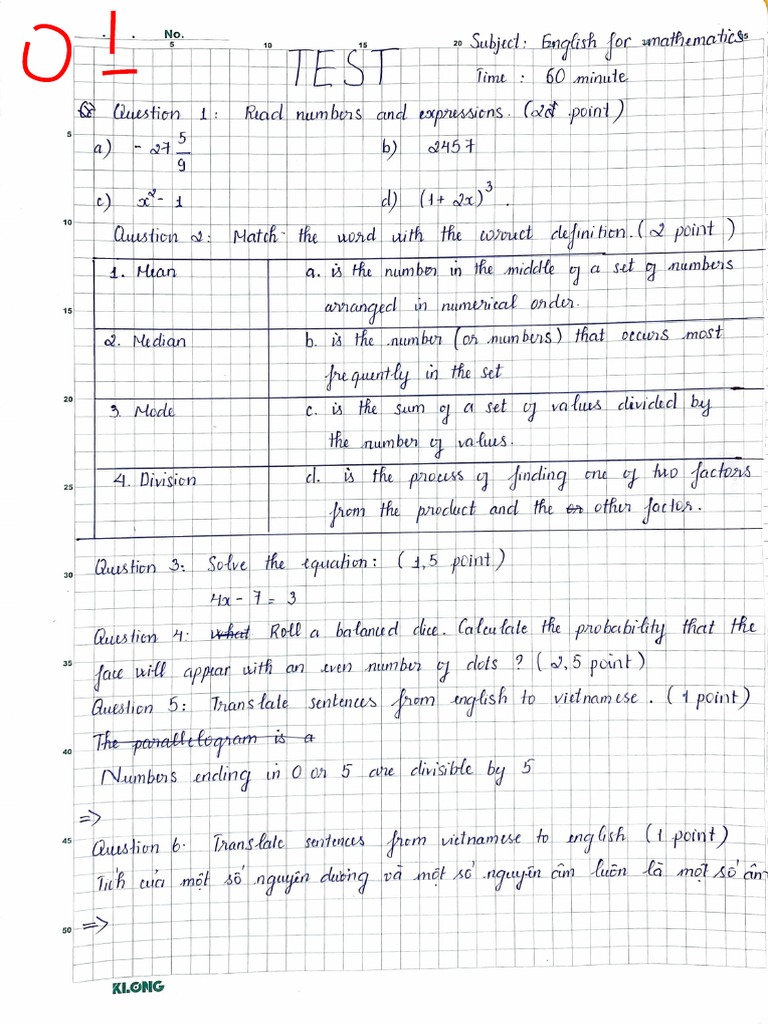 01
No.
Subject: English for mathematics
TEST
Time : 60 minute
Question 1: Read numbers and expressions. (2 point)
a) - 27 5/9 b) 2457
c) x² - 1 d) (1 + 2x)³.
Question 2: Match the word with the correct definition. (2 point)
1. Mean a. is the number in the middle of a set of numbers
arranged in numerical order.
2. Median b. is the number (or numbers) that occurs most
frequently in the set
3. Mode c. is the sum of a set of values divided by
the number of values.
4. Division d. is the process of finding one of two factors
from the product and the or other factor.
Question 3: Solve the equation: (1,5 point)
4x - 7 = 3
Question 4: what Roll a balanced dice. Calculate the probability that the
face will appear with an even number of dots ? (2,5 point)
Question 5: Translate sentences from english to vietnamese. (1 point)
The parallelogram is a
Numbers ending in 0 or 5 are divisible by 5
=>
Question 6. Translate sentences from vietnamese to english (1 point)
Tích của một số nguyên dương và một số nguyên âm luôn là một số âm
=>
KLONG
5 10 15 20
5
10
15
20
25
30
35
40
45
50